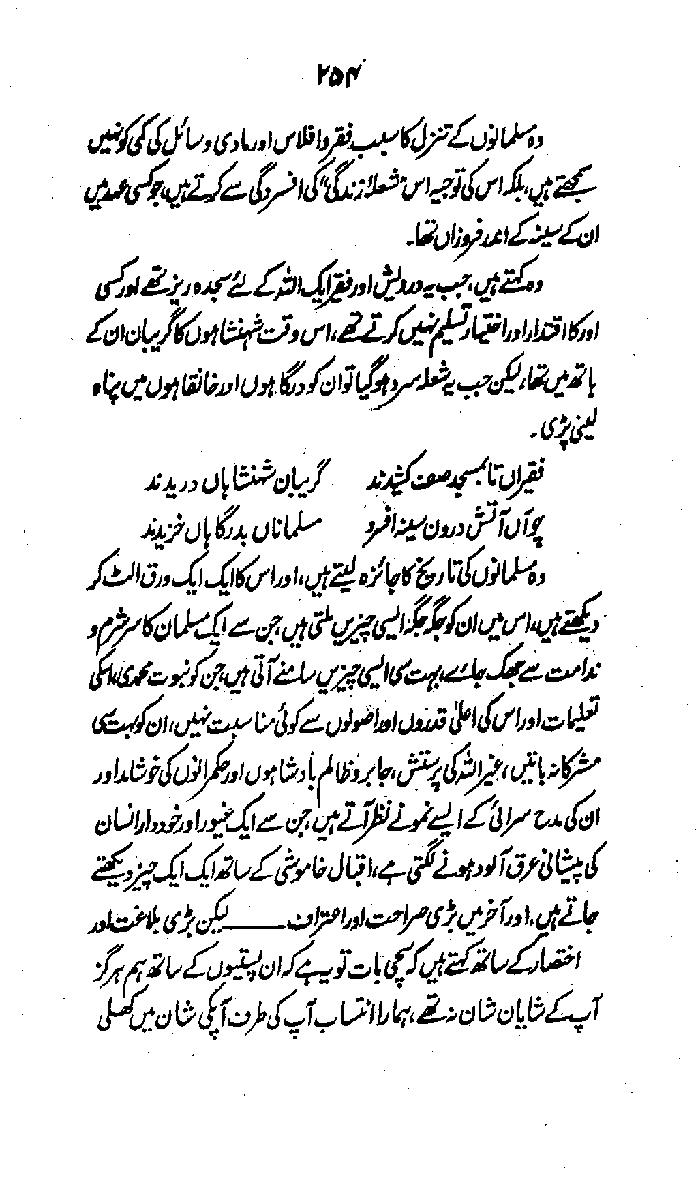 ۲۵۴
وہ مسلمانوں کے تنزل کا سبب فقر و افلاس اور مادی وسائل کی کمی کو نہیں
سمجھتے ہیں، بلکہ اس کی توجیہ اس "شعلۂ زندگی" کی افسردگی سے کرتے ہیں، جو کسی عہد میں
ان کے سینہ کے اندر فروزاں تھا۔
وہ کہتے ہیں، جب یہ درویش اور فقیر ایک اللہ کے لئے سجدہ ریز تھے اور کسی
اور کا اقتدار اور اختیار تسلیم نہیں کرتے تھے، اس وقت شہنشاہوں کا گریبان ان کے
ہاتھ میں تھا، لیکن جب یہ شعلہ سرد ہو گیا تو ان کو درگاہوں اور خانقاہوں میں پناہ
لینی پڑی۔
فقیراں تا بمسجد صف کشیدند گریبان شہنشاہاں دریدند
چو آں آتش درون سینہ افسرد مسلماناں بدرگاہاں خزیدند
وہ مسلمانوں کی تاریخ کا جائزہ لیتے ہیں، اور اس کا ایک ایک ورق الٹ کر
دیکھتے ہیں، اس میں ان کو جگہ جگہ ایسی چیزیں ملتی ہیں، جن سے ایک مسلمان کا سر شرم و
ندامت سے جھک جائے، بہت سی ایسی چیزیں سامنے آتی ہیں، جن کو نبوت محمدی، اسکی
تعلیمات اور اس کی اعلیٰ قدروں اور اصولوں سے کوئی مناسبت نہیں، ان کو بہت سی
مشرکانہ باتیں، غیر اللہ کی پرستش، جابر و ظالم بادشاہوں اور حکمرانوں کی خوشامد اور
ان کی مدح سرائی کے ایسے نمونے نظر آتے ہیں، جن سے ایک غیور اور خوددار انسان
کی پیشانی عرق آلود ہونے لگتی ہے، اقبال خاموشی کے ساتھ ایک ایک چیز دیکھتے
جاتے ہیں، اور آخر میں بڑی صراحت اور اعتراف ــــــ لیکن بڑی بلاغت اور
اختصار کے ساتھ کہتے ہیں کہ سچی بات تو یہ ہے کہ ان پستیوں کے ساتھ ہم ہرگز
آپ کے شایان شان نہ تھے، ہمارا انتساب آپ کی طرف آپکی شان میں کھلی